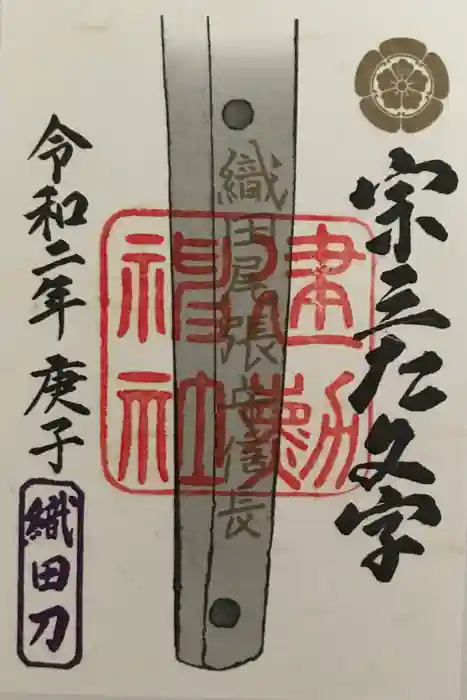 宗三左文字
織田尾張守信長
建勲
神社
令和二年 庚子
織田刀